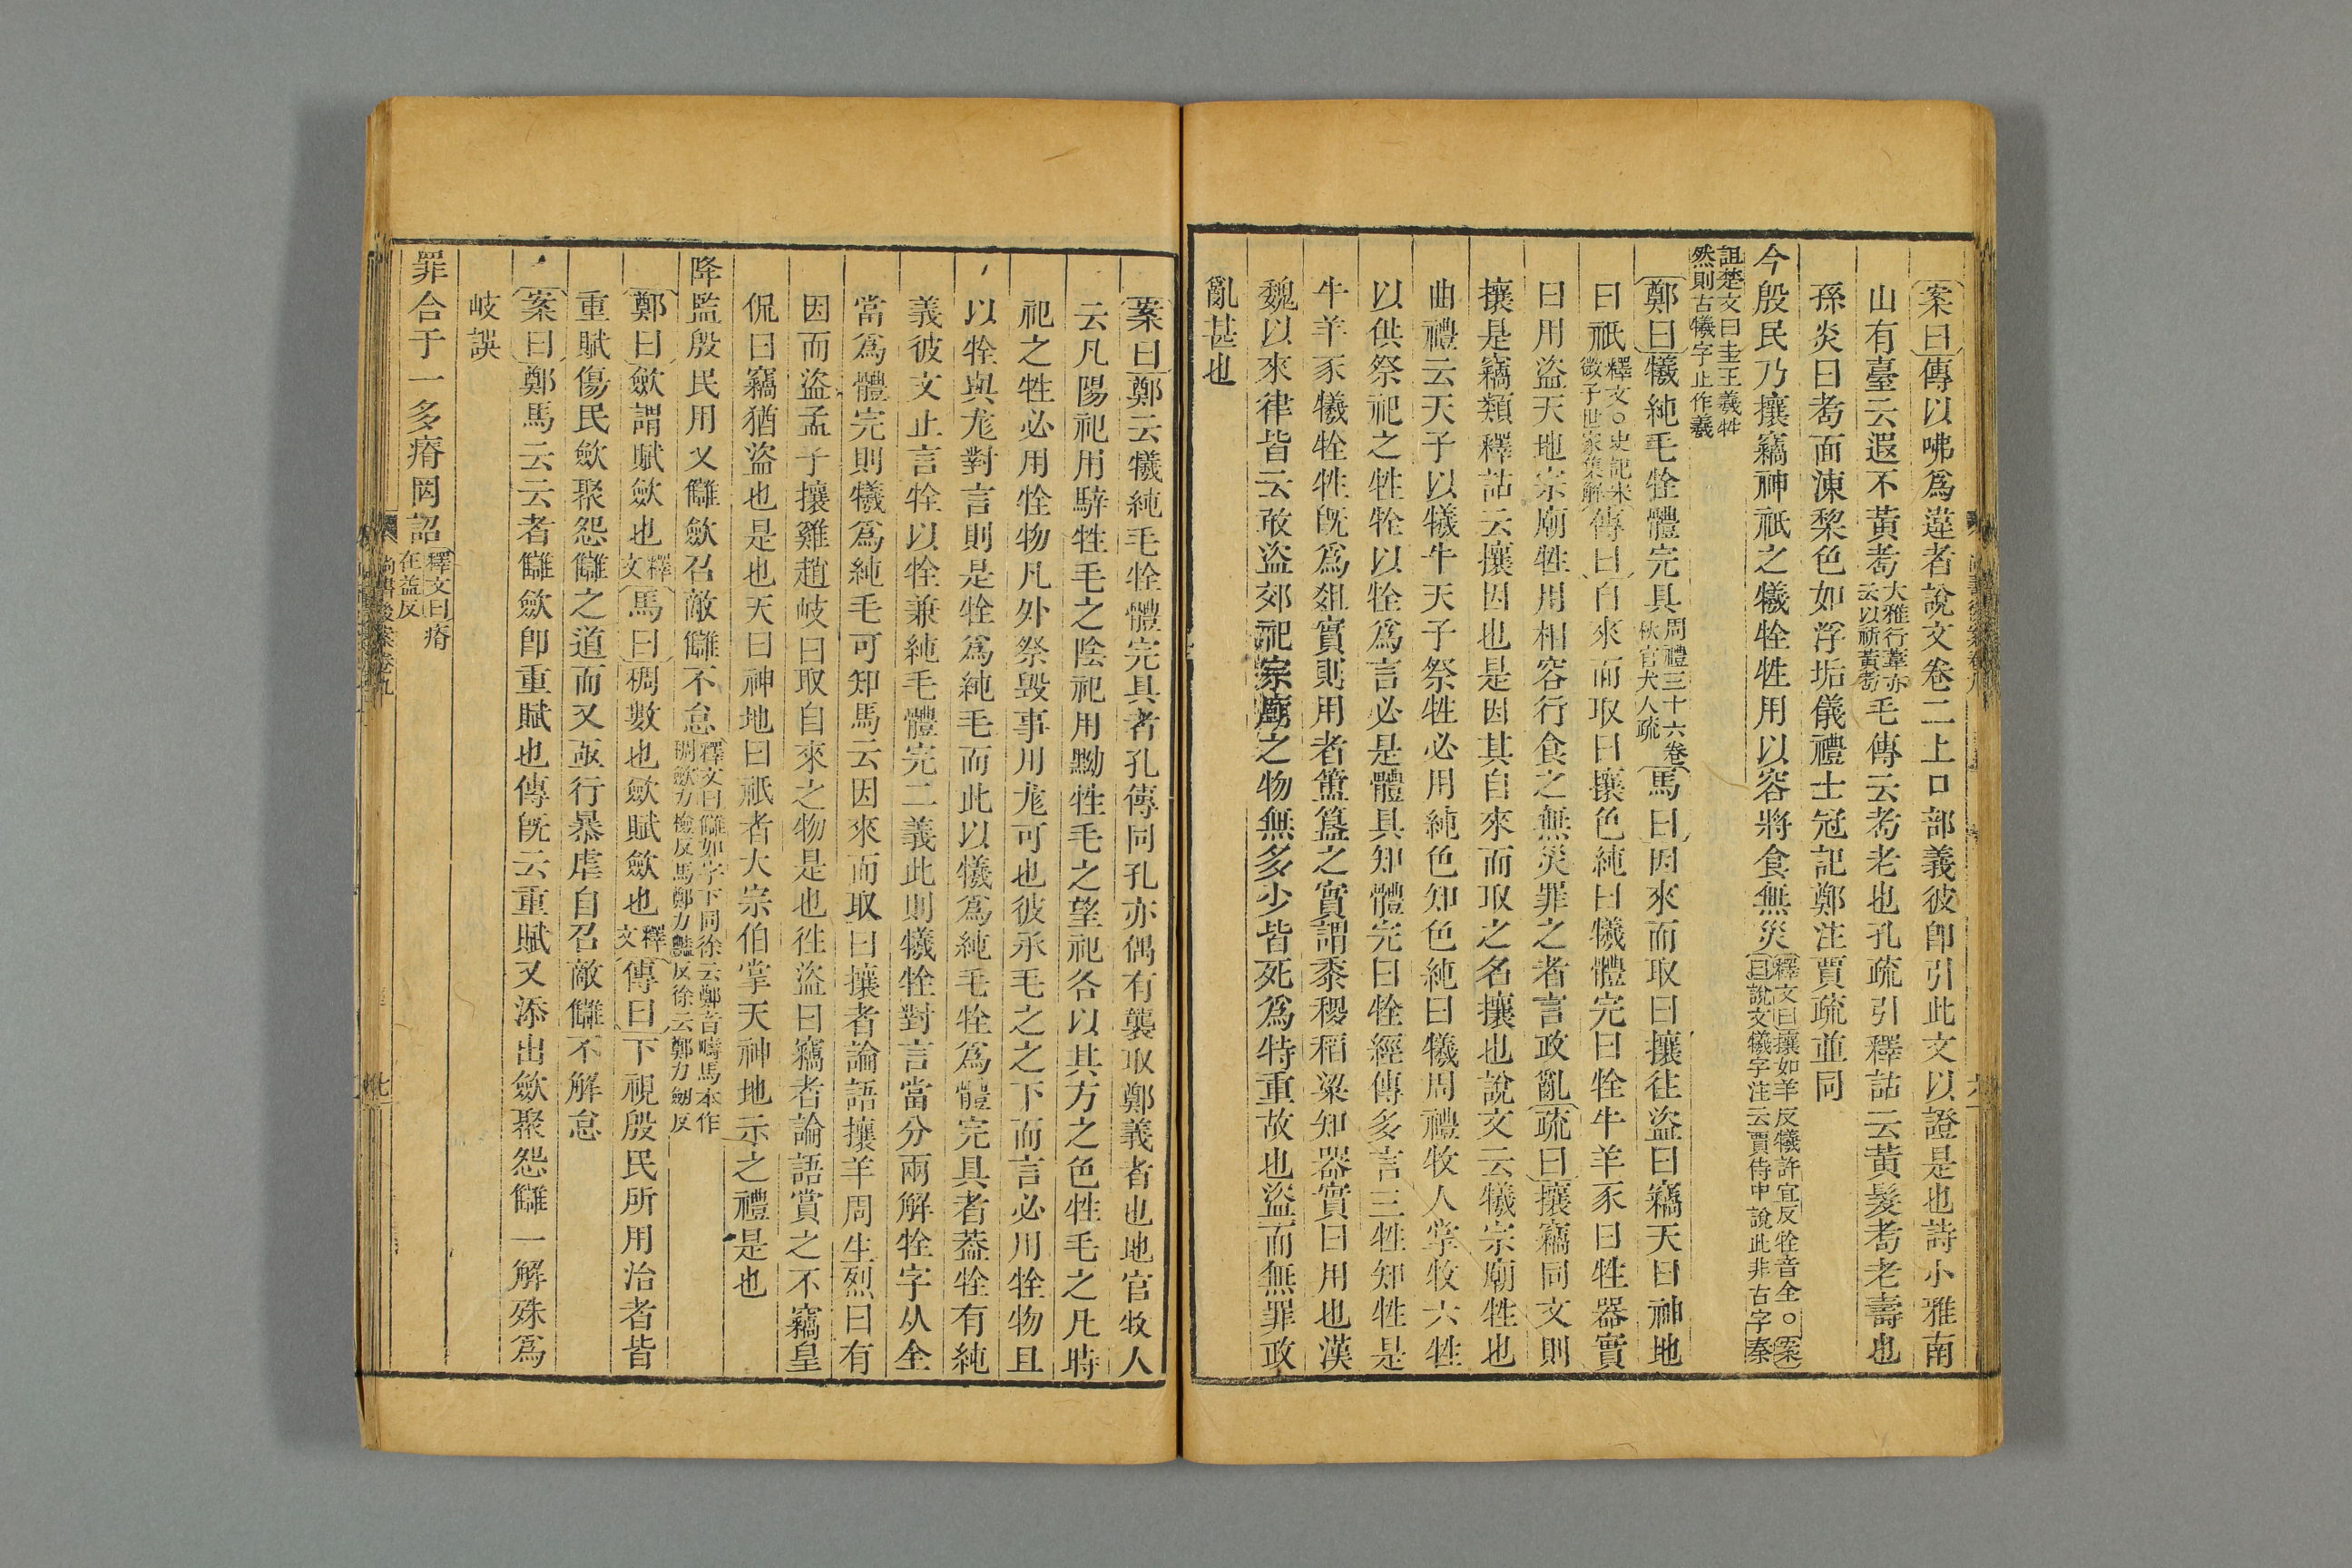 案曰傳以咈爲違者說文卷二上口部義彼卽引此文以證是也詩小雅南
山有臺云遐不黃耇大雅行葦亦云以祈黃耇毛傳云耇老也孔疏引釋詁云黃髮耇老壽也
孫炎曰耇面凍棃色如浮垢儀禮士冠記鄭注賈疏並同
今殷民乃攘竊神祇之犧牷牲用以容將食無災釋文曰攘如羊反犧許宜反牷音全○案曰說文犧字注云賈侍中說此非古字秦
詛楚文曰圭玉羲牲然則古犧字止作羲
鄭曰犧純毛牷體完具周禮三十六卷秋官犬人疏馬曰因來而取曰攘往盜曰竊天曰神地
曰祇釋文○史記宋微子世家集解傳曰自來而取曰攘色純曰犧體完曰牷牛羊豕曰牲器實
曰用盜天地宗廟牲用相容行食之無災罪之者言政亂疏曰攘竊同文則
攘是竊類釋詁云攘因也是因其自來而取之名攘也說文云犧宗廟牲也
曲禮云天子以犧牛天子祭牲必用純色知色純曰犧周禮牧人掌牧六牲
以供祭祀之牲牷以牷爲言必是體具知體完曰牷經傳多言三牲知牲是
牛羊豕犧牷牲旣爲俎實則用者簠簋之實謂黍稷稻粱知器實曰用也漢
魏以來律皆云敢盜郊祀宗廟之物無多少皆死爲特重故也盜而無罪政
亂甚也
案曰鄭云犧純毛牷體完具者孔傳同孔亦偶有襲取鄭義者也地官牧人
云凡陽祀用騂牲毛之陰祀用黝牲毛之望祀各以其方之色牲毛之凡時
祀之牲必用牷物凡外祭毀事用尨可也彼承毛之之下而言必用牷物且
以牷與尨對言則是牷爲純毛而此以犧爲純毛牷爲體完具者葢牷有純
義彼文止言牷以牷兼純毛體完二義此則犧牷對言當分兩解牷字从全
當爲體完則犧爲純毛可知馬云因來而取曰攘者論語攘羊周生烈曰有
因而盜孟子攘雞趙岐曰取自來之物是也往盜曰竊者論語賞之不竊皇
侃曰竊猶盜也是也天曰神地曰祇者大宗伯掌天神地示之禮是也
降監殷民用乂讎斂召敵讎不怠釋文曰讎如字下同徐云鄭音疇馬本作稠斂力儉反馬鄭力豔反徐云鄭力劒反
鄭曰斂謂賦斂也釋文馬曰稠數也斂賦斂也釋文傳曰下視殷民所用治者皆
重賦傷民斂聚怨讎之道而又亟行暴虐自召敵讎不解怠
案曰鄭馬云云者讎斂卽重賦也傳旣云重賦又添出斂聚怨讎一解殊爲
岐誤
罪合于一多瘠罔詔釋文曰瘠在益反
尚書後案卷九
七